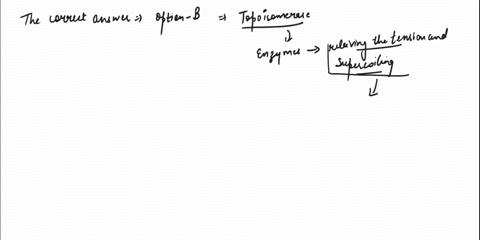 The correct answer ⇒ option-B ⇒ Topoisomerase
↓
Enzymes → relieving the tension and
supercoiling
↓